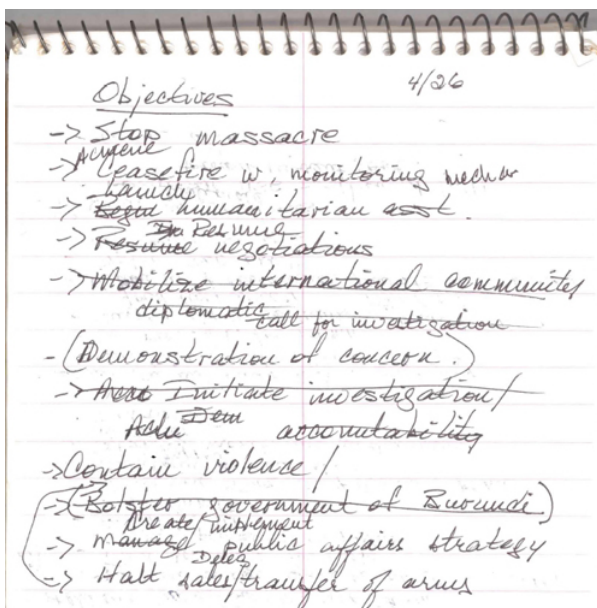 4/26
Objectives
-> Stop massacre
Achieve
-> Ceasefire w, monitoring mechan
Launch
-> Begin humanitarian asst.
Resume
-> Resume negotiations
-> Mobilize international community
diplomatic call for investigation
- (Demonstration of concern.)
-> Initiate investigation/
Dem accountability
-> Contain violence/
-> (Bolster government of Burundi)
Create/implement
-> Manage public affairs strategy
-> Halt sales/transfer of arms